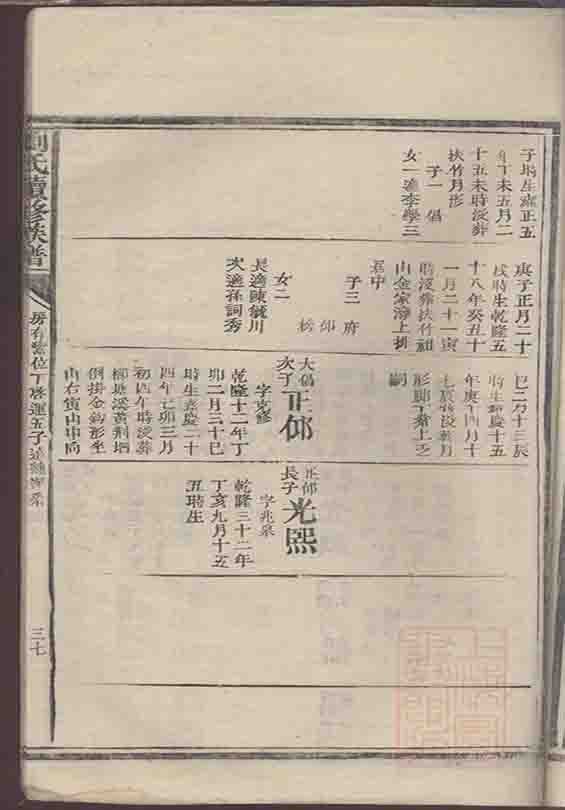 劉氏續修族譜
三七
子時生雍正五
年丁未五月二
十五未時沒葬
扶竹月形
子一 倡
女一適李學三
庚子正月二十
戌時生乾隆五
十八年癸丑十
一月二十一寅
時沒葬扶竹祖
山金家灣上排
子三 府
女二
長適陳毓川
次適孫詞秀
巳二月十三辰
時生嘉慶十五
年庚午四月十
嗣
大倡
次子 正邺
字克修
乾隆十二年丁
卯二月三十巳
時生嘉慶二十
四年己卯三月
初四午時沒葬
倒掛金鈎形坐
山右寅山申向
正邺
長子 光熙
字兆泉
乾隆三十二年
丁亥九月十五
丑時生